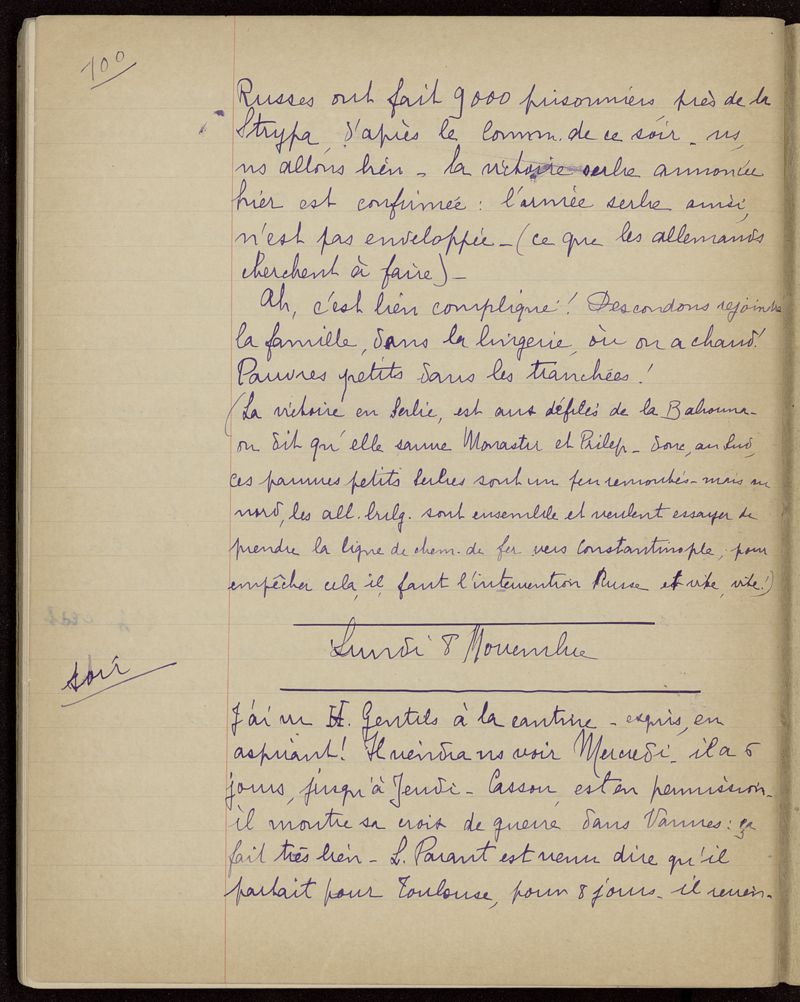 100
Russes ont fait 9000 prisonniers près de la
Strypa, d'après le Comm. de ce soir - ns,
ns allons bien - la victoire serbe annoncée
hier est confirmée : l'armée serbe ainsi,
n'est pas enveloppée - (ce que les allemands
cherchent à faire) -
Ah, c'est bien compliqué ! Descendons rejoindre
la famille, dans la lingerie, où on a chaud !
Pauvres petits dans les tranchées !
(La victoire en Serbie, est aux défilés de la Babouna -
on dit qu'elle sauve Monastir et Prilep - donc, au Sud,
ces pauvres petits Serbes sont un peu remontés - mais au
nord, les all. bulg. sont ensemble et veulent essayer de
prendre la ligne de chem. de fer vers Constantinople ; pour
empêcher cela, il faut l'intervention Russe et vite, vite !)
Lundi 8 Novembre
soir
J'ai vu H. Gentils à la cantine - exquis, en
aspirant ! Il viendra ns voir Mercredi - il a 6
jours, jusqu'à Jeudi - Casson est en permission -
il montre sa croix de guerre dans Vannes : ça
fait très bien - L. Parant est venu dire qu'il
partait pour Toulouse, pour 8 jours - il revien-